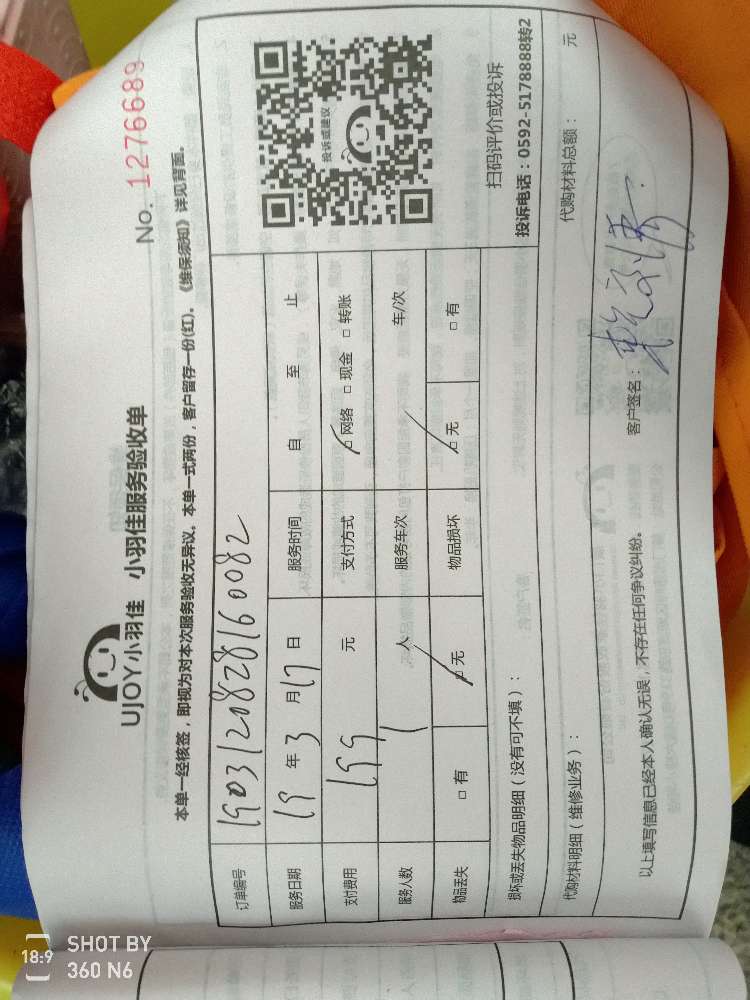 No. 1276689
UJOY小羽佳 小羽佳服务验收单
本单一经核签，即视为对本次服务验收无异议。本单一式两份，客户留存一份(红)。《维保须知》详见背面。
订单编号 1903120828160082
服务日期 19 年 3 月 17 日 服务时间 自 至 止
支付费用 199 元 支付方式 □网络 □现金 □转账
服务人数 1 人 服务车次 车/次
物品丢失 □有 □无 物品损坏 □无 □有
投诉或建议
扫码评价或投诉
投诉电话：0592-5178888转2
损坏或丢失物品明细（没有可不填）：
代购材料明细（维修业务）： 代购材料总额： 元
以上填写信息已经本人确认无误，不存在任何争议纠纷。 客户签名：
18:9 SHOT BY
360 N6